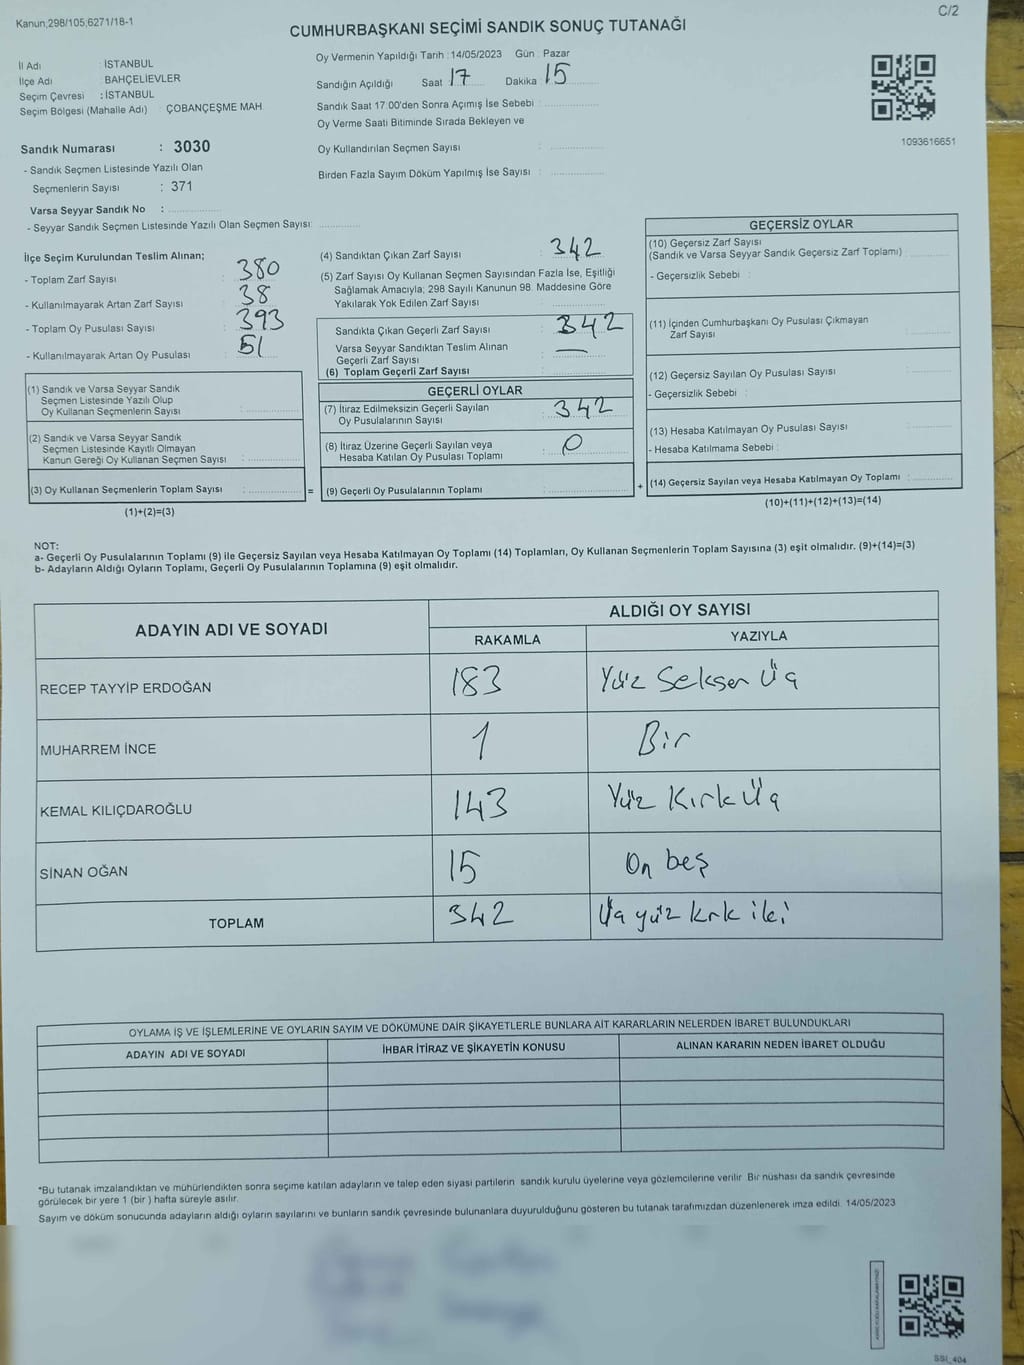 Kanun;298/105;6271/18-1
C/2
CUMHURBAŞKANI SEÇİMİ SANDIK SONUÇ TUTANAĞI
İl Adı : İSTANBUL
İlçe Adı : BAHÇELİEVLER
Seçim Çevresi : İSTANBUL
Seçim Bölgesi (Mahalle Adı) : ÇOBANÇEŞME MAH.
Oy Vermenin Yapıldığı Tarih : 14/05/2023 Gün : Pazar
Sandığın Açıldığı Saat 17 Dakika 15
Sandık Saat 17.00'den Sonra Açımış İse Sebebi :
Oy Verme Saati Bitiminde Sırada Bekleyen ve
Oy Kullandırılan Seçmen Sayısı :
Birden Fazla Sayım Döküm Yapılmış İse Sayısı :
1093616651
Sandık Numarası : 3030
- Sandık Seçmen Listesinde Yazılı Olan
Seçmenlerin Sayısı : 371
Varsa Seyyar Sandık No :
- Seyyar Sandık Seçmen Listesinde Yazılı Olan Seçmen Sayısı:
İlçe Seçim Kurulundan Teslim Alınan;
- Toplam Zarf Sayısı : 380
- Kullanılmayarak Artan Zarf Sayısı : 38
- Toplam Oy Pusulası Sayısı : 393
- Kullanılmayarak Artan Oy Pusulası : 51
(1) Sandık ve Varsa Seyyar Sandık
Seçmen Listesinde Yazılı Olup
Oy Kullanan Seçmenlerin Sayısı :
(2) Sandık ve Varsa Seyyar Sandık
Seçmen Listesinde Kayıtlı Olmayan
Kanun Gereği Oy Kullanan Seçmen Sayısı :
(3) Oy Kullanan Seçmenlerin Toplam Sayısı :
(1)+(2)=(3)
(4) Sandıktan Çıkan Zarf Sayısı : 342
(5) Zarf Sayısı Oy Kullanan Seçmen Sayısından Fazla İse, Eşitliği
Sağlamak Amacıyla; 298 Sayılı Kanunun 98. Maddesine Göre
Yakılarak Yok Edilen Zarf Sayısı :
Sandıkta Çıkan Geçerli Zarf Sayısı : 342
Varsa Seyyar Sandıktan Teslim Alınan
Geçerli Zarf Sayısı : —
(6) Toplam Geçerli Zarf Sayısı :
GEÇERLİ OYLAR
(7) İtiraz Edilmeksizin Geçerli Sayılan
Oy Pusulasının Sayısı : 342
(8) İtiraz Üzerine Geçerli Sayılan veya
Hesaba Katılan Oy Pusulası Toplamı : 0
= (9) Geçerli Oy Pusulalarının Toplamı :
GEÇERSİZ OYLAR
(10) Geçersiz Zarf Sayısı
(Sandık ve Varsa Seyyar Sandık Geçersiz Zarf Toplamı) :
- Geçersizlik Sebebi :
(11) İçinden Cumhurbaşkanı Oy Pusulası Çıkmayan
Zarf Sayısı :
(12) Geçersiz Sayılan Oy Pusulası Sayısı :
- Geçersizlik Sebebi :
(13) Hesaba Katılmayan Oy Pusulası Sayısı :
- Hesaba Katılmama Sebebi :
+ (14) Geçersiz Sayılan veya Hesaba Katılmayan Oy Toplamı :
(10)+(11)+(12)+(13)=(14)
NOT:
a- Geçerli Oy Pusulalarının Toplamı (9) ile Geçersiz Sayılan veya Hesaba Katılmayan Oy Toplamı (14) Toplamları, Oy Kullanan Seçmenlerin Toplam Sayısına (3) eşit olmalıdır. (9)+(14)=(3)
b- Adayların Aldığı Oyların Toplamı, Geçerli Oy Pusulalarının Toplamına (9) eşit olmalıdır.
ADAYIN ADI VE SOYADI
ALDIĞI OY SAYISI
RAKAMLA YAZIYLA
RECEP TAYYİP ERDOĞAN 183 Yüz Seksen Üç
MUHARREM İNCE 1 Bir
KEMAL KILIÇDAROĞLU 143 Yüz Kırk Üç
SİNAN OĞAN 15 On beş
TOPLAM 342 Üç yüz kırk iki
OYLAMA İŞ VE İŞLEMLERİNE VE OYLARIN SAYIM VE DÖKÜMÜNE DAİR ŞİKAYETLERLE BUNLARA AİT KARARLARIN NELERDEN İBARET BULUNDUKLARI
ADAYIN ADI VE SOYADI İHBAR İTİRAZ VE ŞİKAYETİN KONUSU ALINAN KARARIN NEDEN İBARET OLDUĞU
*Bu tutanak imzalandıktan ve mühürlendikten sonra seçime katılan adayların ve talep eden siyasi partilerin sandık kurulu üyelerine veya gözlemcilerine verilir. Bir nüshası da sandık çevresinde
görülecek bir yere 1 (bir ) hafta süreyle asılır.
Sayım ve döküm sonucunda adayların aldığı oyların sayılarını ve bunların sandık çevresinde bulunanlara duyurulduğunu gösteren bu tutanak tarafımızdan düzenlenerek imza edildi. 14/05/2023
SSI_404